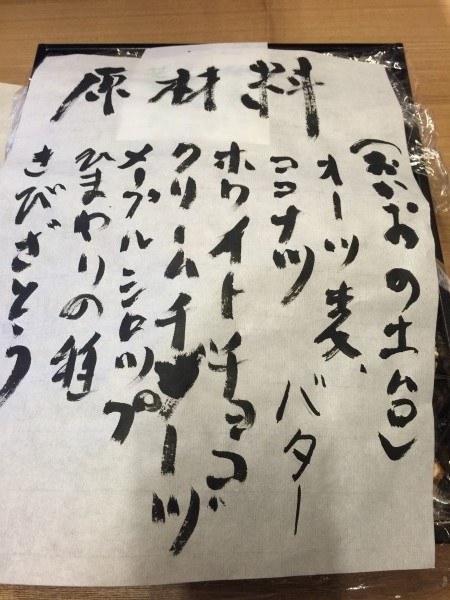 原材料
(おかおの土台)
オーツ麦、バター
ココナツ
ホワイトチョコ
クリームチーヅ
メープルシロップ
ひまわりの種
きびざとう